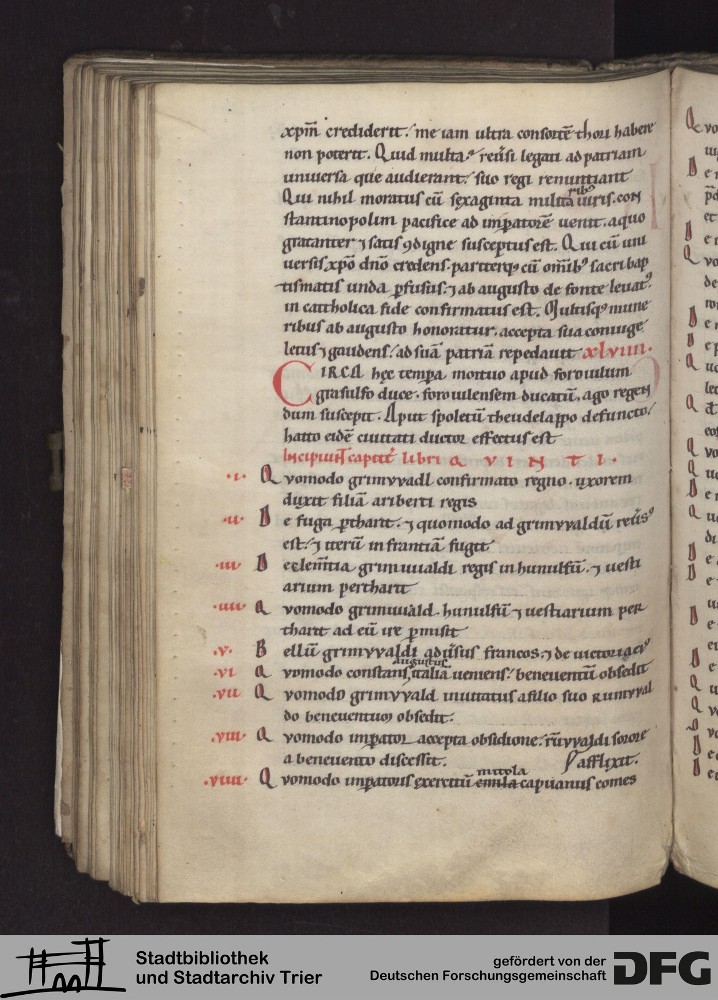 xpm̄ crediderit. me iam ultra consortē thori habere
non poterit. Quid multa? reūsi legati ad patriam
uniuersa que audierant. suo regi renuntiant
Qui nihil moratus cū sexaginta milib' uiris. con
stantinopolim pacifice ad impatorē uenit. a quo
gratanter ⁊ satis ꝯdigne susceptus est. Qui cū uni
uersis xpō dnō credens. pariterq; cū omib' sacri bap
tismatis unda pfusus. ⁊ ab augusto de fonte leuat'.
in catholica fide confirmatus est. Multisq; mune
ribus ab augusto honoratur. accepta sua coniuge
letus ⁊ gaudens. ad suā patriā repedauit xlviiii.
CIRCA hęc tempa mortuo apud foroiulum
grasulfo duce. foroiulensem ducatū. ago regen
dum suscepit. Aput spoletū theudelappo defuncto.
hatto eidē ciuitati ductor effectus est
Incipiunt capitt libri QVINTI.
.i. Quomodo grimwald confirmato regno. uxorem
duxit filiā ariberti regis
.ii. De fuga ptharit. ⁊ quomodo ad grimwaldū reūs'
est. ⁊ iterū in frantiā fugit
.iii. De clemtia grimuualdi regis in hunulfū. ⁊ uesti
arium perthariti
.iiii. Quomodo grimuuald. hunulfū ⁊ uestiarium per
tharit ad eū ire pmisit
.v. Bellū grimwaldi aduśus francos. ⁊ de uictoria ei'
.vi Quomodo constans augustus italiā ueniens. beneuentū obsedit
.vii Quomodo grimwald inuitatus a filio suo rumwal
do beneuentum obsedit.
.viii. Quomodo impator accepta obsidione. rūwaldi sorore
a beneuento discessit. afflixit.
.viiii. Quomodo impatoris exercitū mitola capuanus comes
Stadtbibliothek
und Stadtarchiv Trier
gefördert von der
Deutschen Forschungsgemeinschaft
DFG